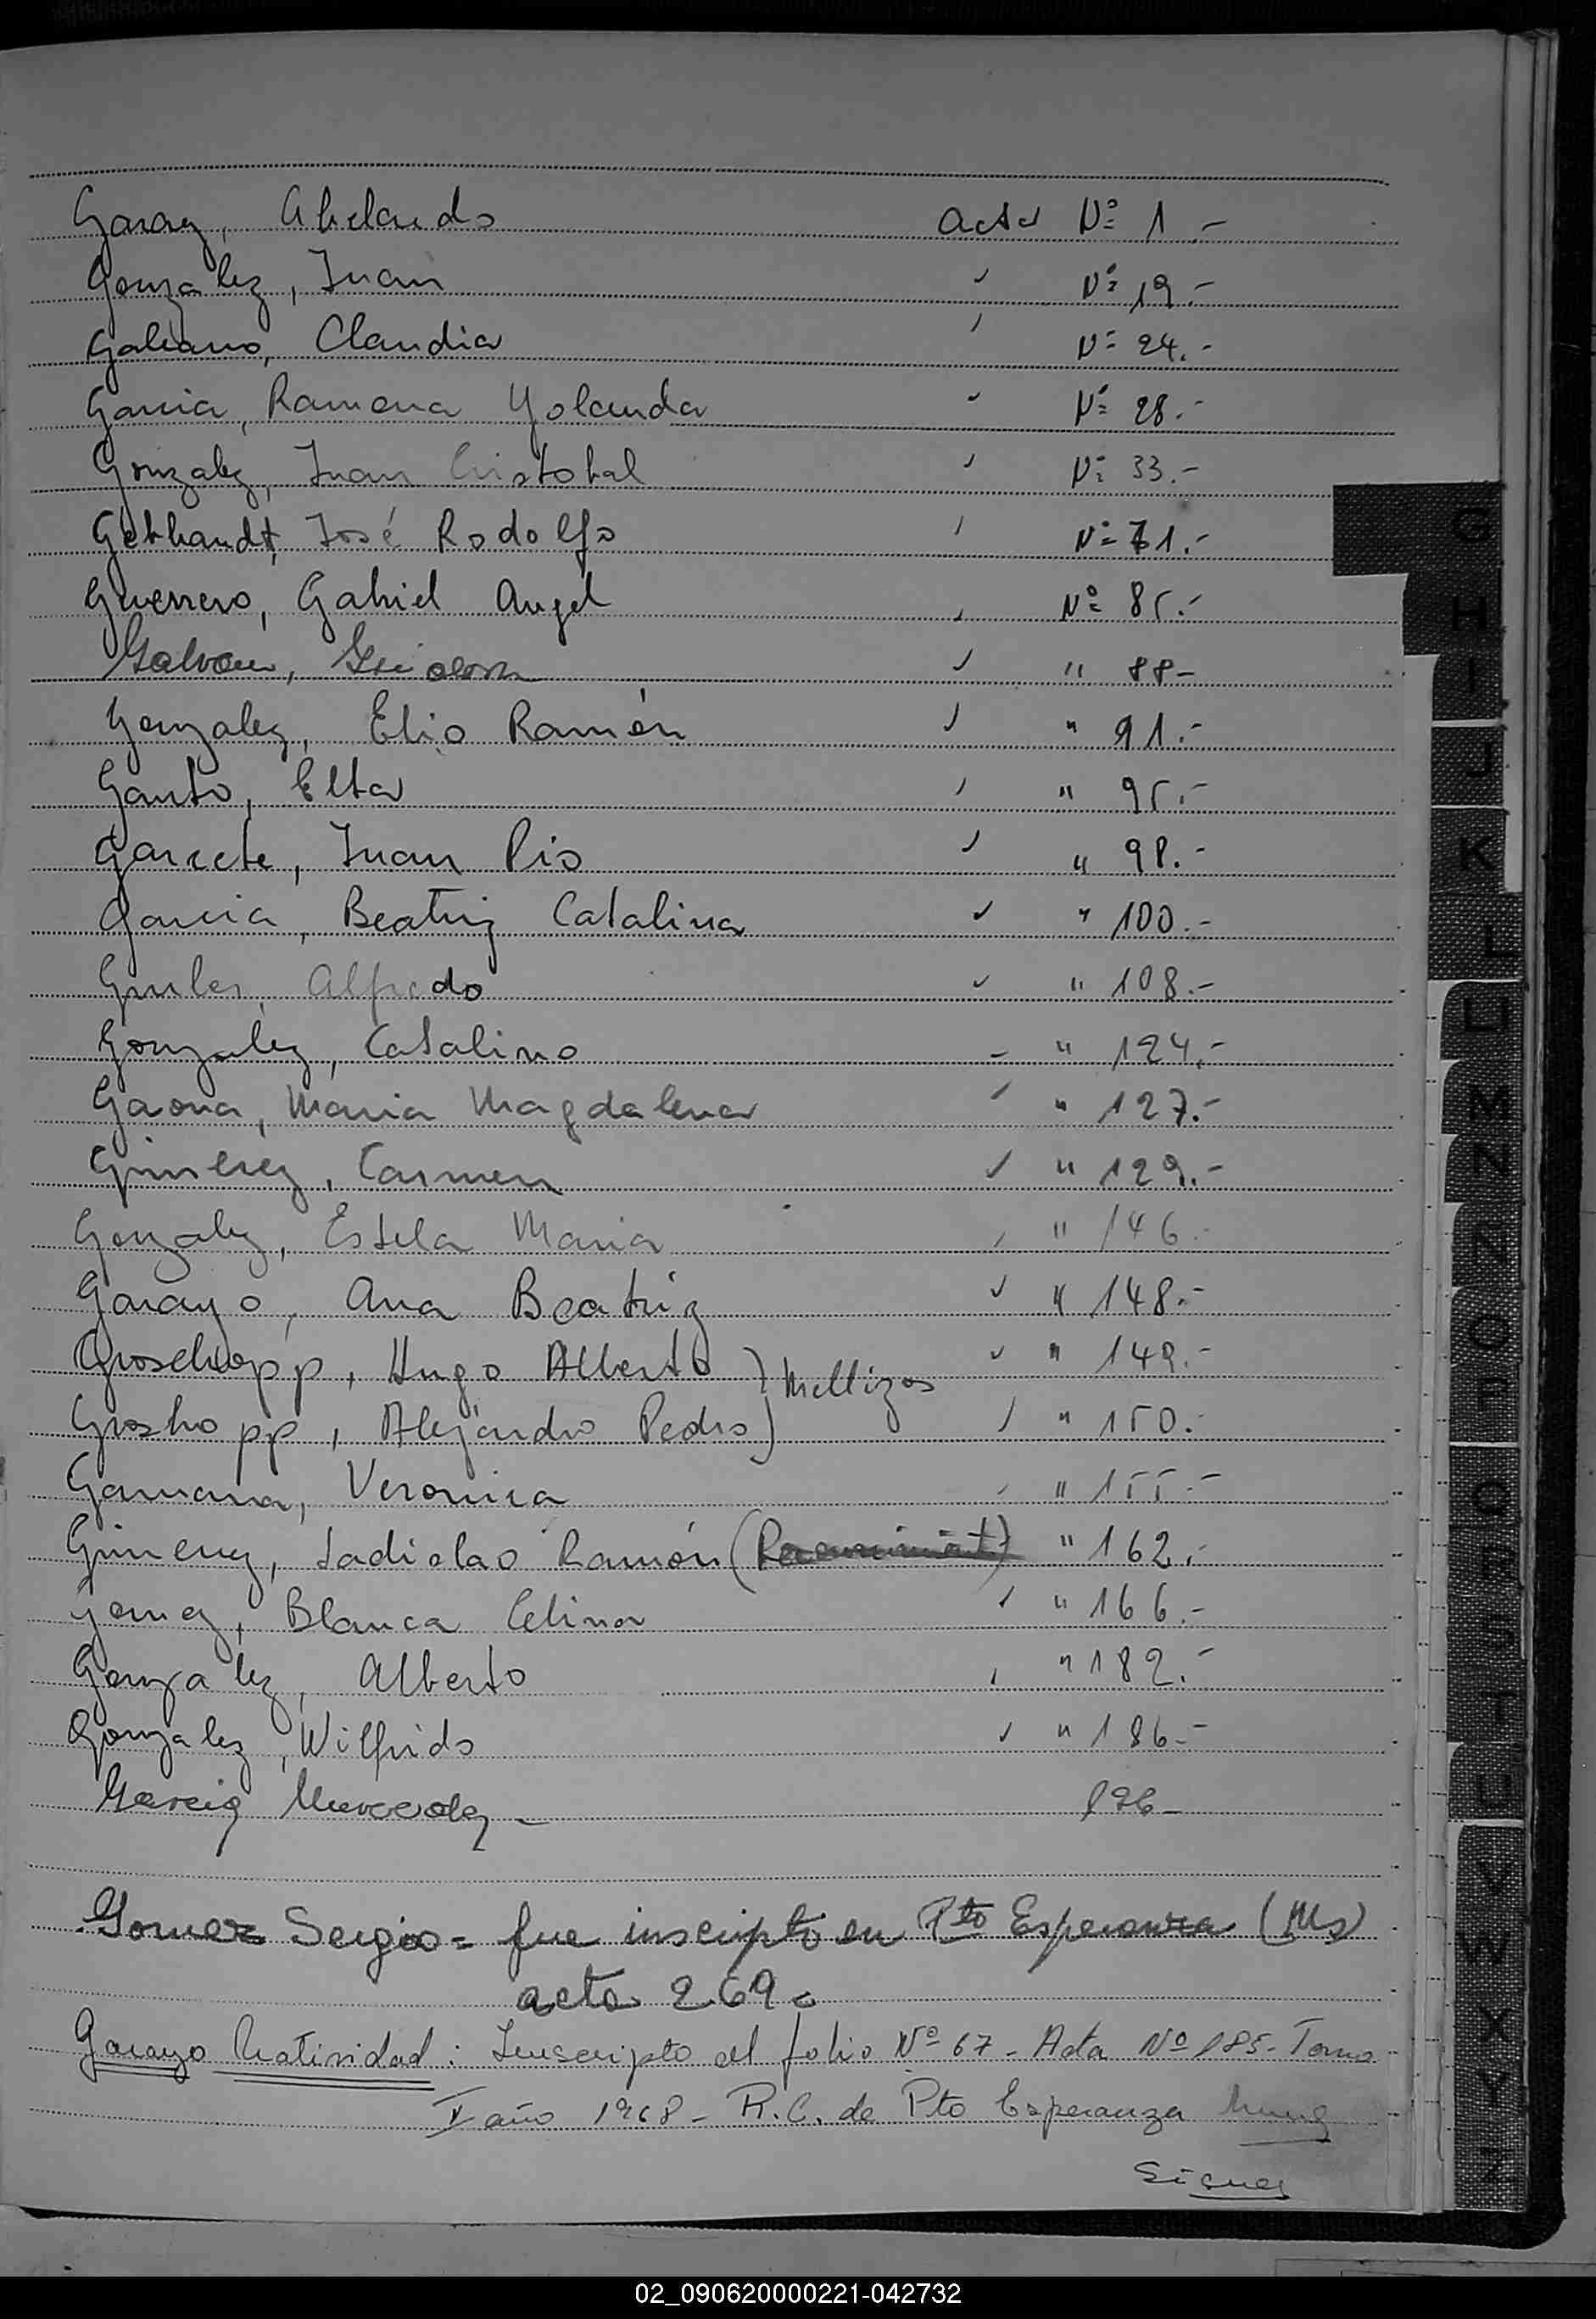 Garay, Abelardo acta Nº 1.-
Gonzalez, Juan " Nº 19.-
Galeano, Claudia " Nº 24.-
Garcia, Ramona Yolanda " Nº 28.-
Gonzalez, Juan Cristobal " Nº 33.-
Gebhardt, José Rodolfo " Nº 71.-
Guerrero, Gabriel Angel " Nº 85.-
Galvan, " 88-
Gonzalez, Elio Ramón " 91.-
Gauto, Elba " 95.-
Garcete, Juan Pio " 98.-
Garcia, Beatriz Catalina " 100.-
Alfredo " 108.-
Gonzalez, Catalino " 124.-
Gaona, Maria Magdalena " 127.-
Gimenez, Carmen " 129.-
Gonzalez, Estela Maria " 146.-
Garayo, Ana Beatriz " 148.-
Groschopp, Hugo Alberto ) Mellizos " 149.-
Groshopp, Alejandro Pedro ) " 150.-
Gamarra, Veronica " 155.-
Gimenez, Ladislao Ramón " 162.-
Gomez, Blanca Celina " 166.-
Gonzalez, Alberto " 182.-
Gonzalez, Wilfrido " 186.-
Garcia Mercedes - 196-
Gomez Sergio = fue inscripto en Pto Esperanza (Ms)
acta 269.
Garayo Natividad: Inscripto al folio Nº 67 - Acta Nº 185 - Tomo
II año 1968 - R.C. de Pto Esperanza
Sigue
G
H
I
J
K
L
LL
M
N
Ñ
O
P
Q
R
S
T
U
V
W
X
Y
Z
02_090620000221-042732